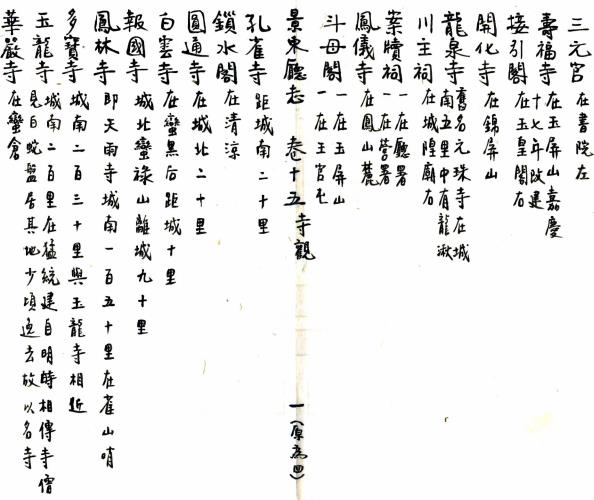 三元宮 在書院左
壽福寺 在玉屏山嘉慶十七年改建
接引閣 在玉皇閣右
開化寺 在錦屏山
龍泉寺 舊名元珠寺在城南五里中有龍湫
川主祠 在城隍廟右
案牘祠 一在廳署一在營署
鳳儀寺 在鳳山麓
斗母閣 一在玉屏山一在玉官屯
景東廳志 卷十五 寺觀 一(原為四)
孔雀寺 距城南二十里
鎖水閣 在清涼
圓通寺 在城北二十里
白雲寺 在蠻黑后距城十里
報國寺 城北蠻祿山離城九十里
鳳林寺 即天雨寺城南一百五十里在雀山哨
多寶寺 城南二百三十里與玉龍寺相近
玉龍寺 城南二百里在猛統建自明時相傳寺僧見白蛇盤居其地少頃逸去故以名寺
華嚴寺 在蠻倉